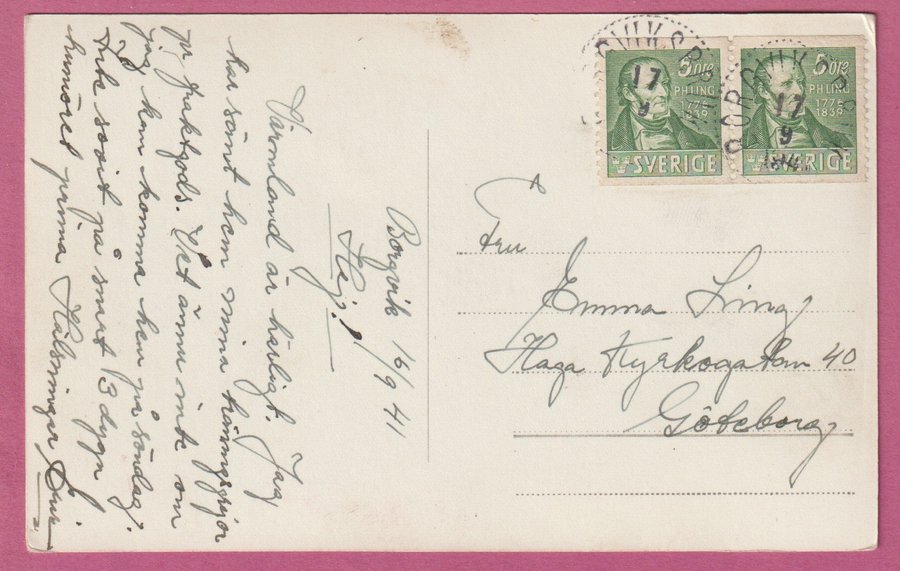 Borgvik 16/9 41
Hej!
Värmland är härligt. Jag
har sänt hem mina
på fraktgods. Vet ännu inte om
jag kan komma hem på söndag.
Inte sovit på snart 3 dygn
humöret prima Hälsningar
BORGVIK
17
9
5 ÖRE
PH LING
1776
1839
SVERIGE
BORGVIK
17
9
5 ÖRE
PH LING
1776
1839
SVERIGE
Fru
Emma Ling
Haga Kyrkogatan 40
Göteborg